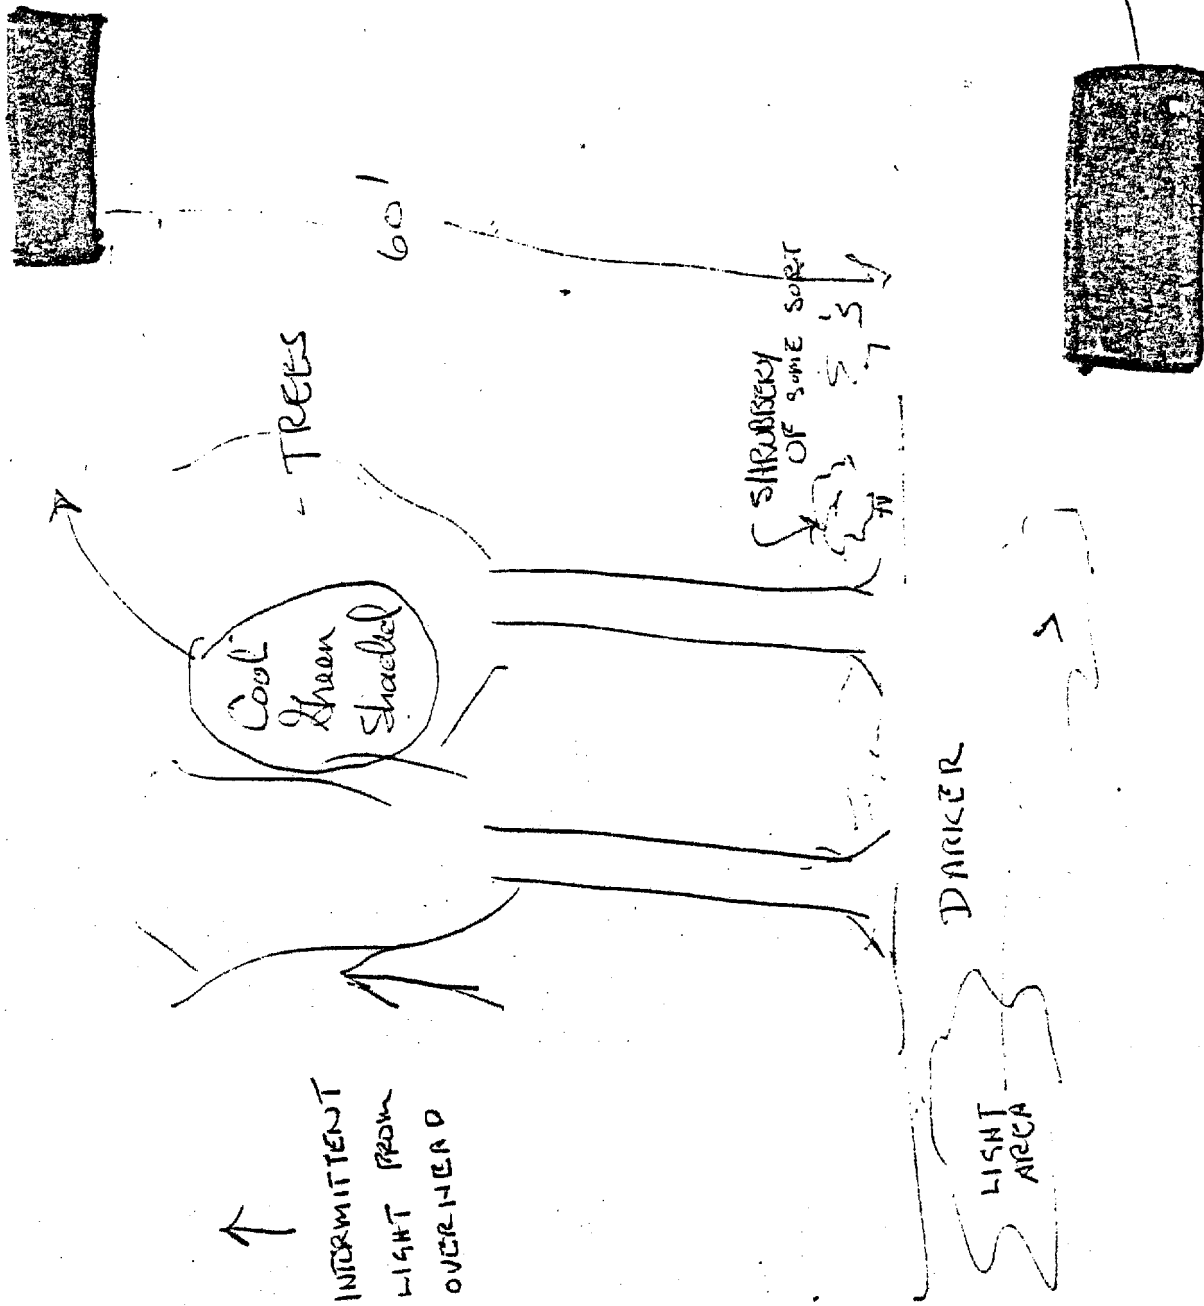 INTERMITTENT
LIGHT FROM
OVERHEAD
Cool
Green
Shaded
- TREES
60'
SHRUBBERY
OF SOME SORT
DARKER
LIGHT
AREA